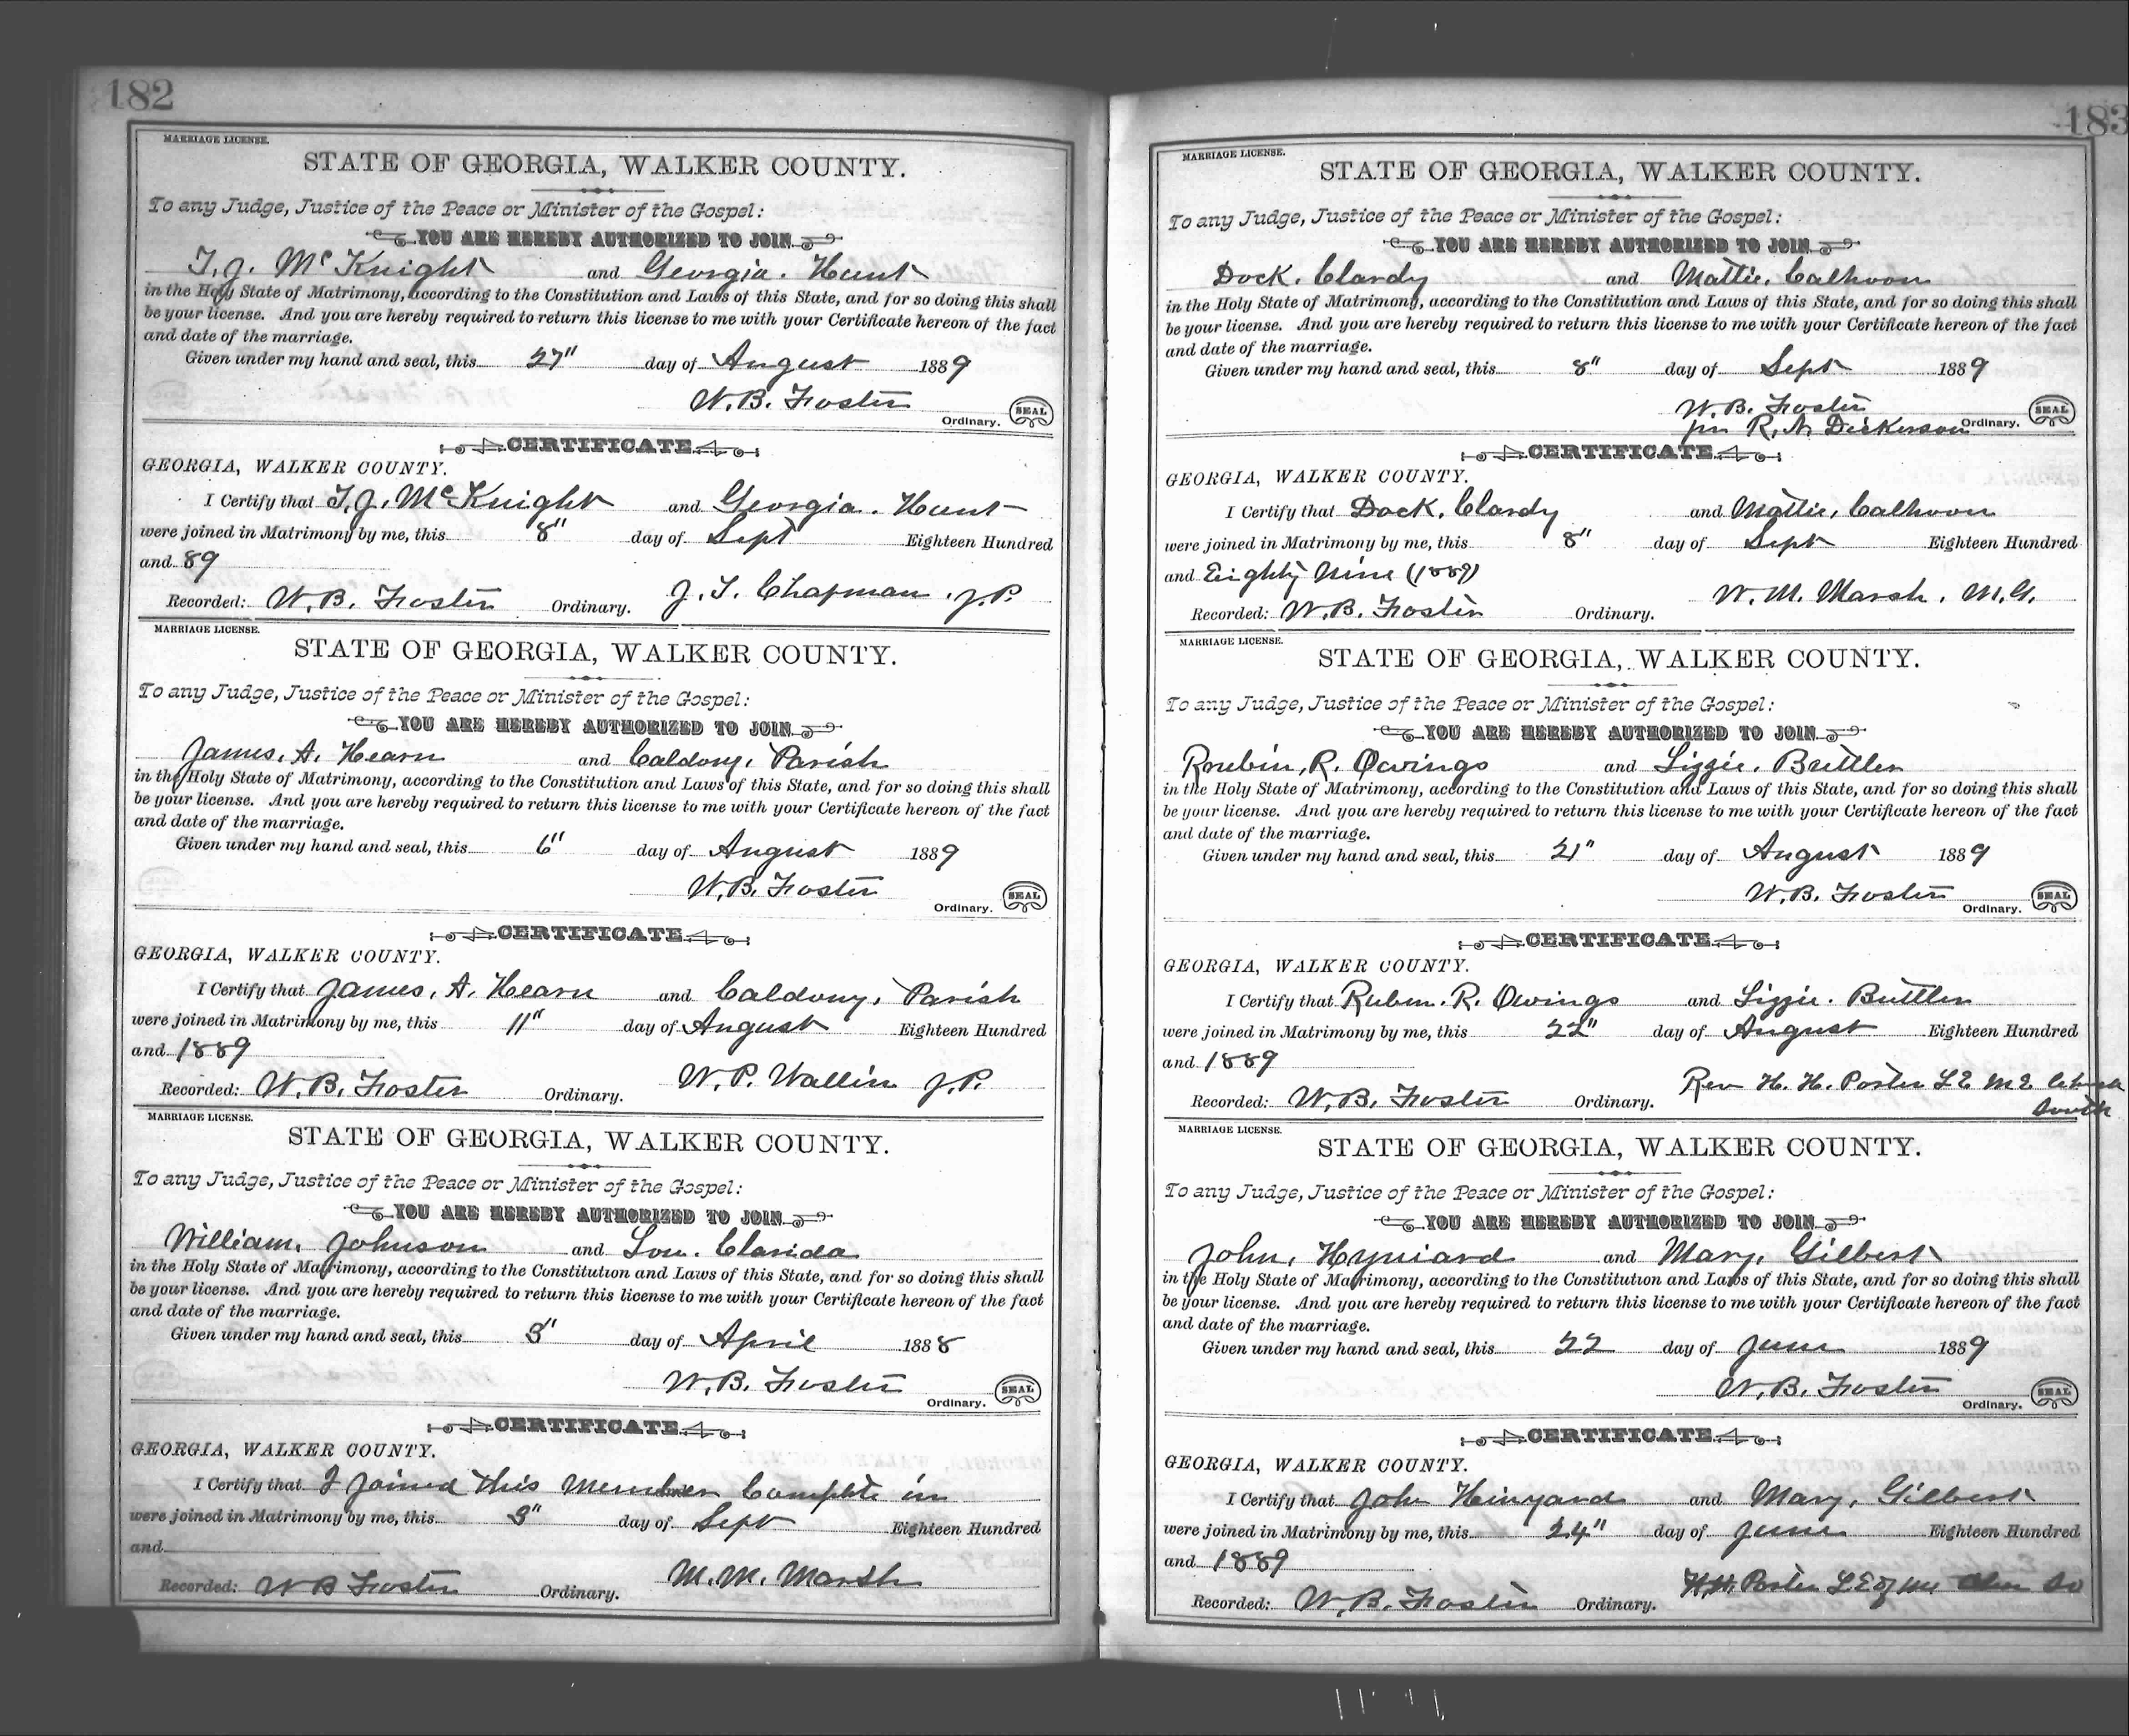 182
MARRIAGE LICENSE.
STATE OF GEORGIA, WALKER COUNTY.
To any Judge, Justice of the Peace or Minister of the Gospel:
YOU ARE HEREBY AUTHORIZED TO JOIN
T. J. McKnight and Georgia. Hunt
in the Holy State of Matrimony, according to the Constitution and Laws of this State, and for so doing this shall
be your license. And you are hereby required to return this license to me with your Certificate hereon of the fact
and date of the marriage.
Given under my hand and seal, this 27" day of August 1889
W. B. Foster
Ordinary. SEAL
CERTIFICATE
GEORGIA, WALKER COUNTY.
I Certify that T. J. McKnight and Georgia. Hunt
were joined in Matrimony by me, this 8" day of Sept Eighteen Hundred
and 89
Recorded: W. B. Foster Ordinary. J. T. Chapman. J.P.
MARRIAGE LICENSE.
STATE OF GEORGIA, WALKER COUNTY.
To any Judge, Justice of the Peace or Minister of the Gospel:
YOU ARE HEREBY AUTHORIZED TO JOIN
James, A. Hearn and Caldony, Parish
in the Holy State of Matrimony, according to the Constitution and Laws of this State, and for so doing this shall
be your license. And you are hereby required to return this license to me with your Certificate hereon of the fact
and date of the marriage.
Given under my hand and seal, this 6" day of August 1889
W. B. Foster
Ordinary. SEAL
CERTIFICATE
GEORGIA, WALKER COUNTY.
I Certify that James, A. Hearn and Caldony, Parish
were joined in Matrimony by me, this 11" day of August Eighteen Hundred
and 1889
Recorded: W. B. Foster Ordinary. W. P. Wallin J.P.
MARRIAGE LICENSE.
STATE OF GEORGIA, WALKER COUNTY.
To any Judge, Justice of the Peace or Minister of the Gospel:
YOU ARE HEREBY AUTHORIZED TO JOIN
William, Johnson and Lou. Clarida
in the Holy State of Matrimony, according to the Constitution and Laws of this State, and for so doing this shall
be your license. And you are hereby required to return this license to me with your Certificate hereon of the fact
and date of the marriage.
Given under my hand and seal, this 3" day of April 1888
W. B. Foster
Ordinary. SEAL
CERTIFICATE
GEORGIA, WALKER COUNTY.
I Certify that I joined this Complete in
were joined in Matrimony by me, this 3" day of Sept Eighteen Hundred
and
Recorded: W B Foster Ordinary. M. M. Marsh
183
MARRIAGE LICENSE.
STATE OF GEORGIA, WALKER COUNTY.
To any Judge, Justice of the Peace or Minister of the Gospel:
YOU ARE HEREBY AUTHORIZED TO JOIN
Dock. Clardy and Mattie, Calhoun
in the Holy State of Matrimony, according to the Constitution and Laws of this State, and for so doing this shall
be your license. And you are hereby required to return this license to me with your Certificate hereon of the fact
and date of the marriage.
Given under my hand and seal, this 8" day of Sept 1889
W. B. Foster
per R. N. Dickerson Ordinary. SEAL
CERTIFICATE
GEORGIA, WALKER COUNTY.
I Certify that Dock. Clardy and Mattie, Calhoun
were joined in Matrimony by me, this 8" day of Sept Eighteen Hundred
and Eighty Nine (1889)
Recorded: W. B. Foster Ordinary. W. M. Marsh, M.G.
MARRIAGE LICENSE.
STATE OF GEORGIA, WALKER COUNTY.
To any Judge, Justice of the Peace or Minister of the Gospel:
YOU ARE HEREBY AUTHORIZED TO JOIN
Roubin, R. Owings and Lizzie. Buttler
in the Holy State of Matrimony, according to the Constitution and Laws of this State, and for so doing this shall
be your license. And you are hereby required to return this license to me with your Certificate hereon of the fact
and date of the marriage.
Given under my hand and seal, this 21" day of August 1889
W. B. Foster
Ordinary. SEAL
CERTIFICATE
GEORGIA, WALKER COUNTY.
I Certify that Ruben. R. Owings and Lizzie. Buttler
were joined in Matrimony by me, this 22" day of August Eighteen Hundred
and 1889
Recorded: W. B. Foster Ordinary. Rev H. H. Porter L E M E Church
South
MARRIAGE LICENSE.
STATE OF GEORGIA, WALKER COUNTY.
To any Judge, Justice of the Peace or Minister of the Gospel:
YOU ARE HEREBY AUTHORIZED TO JOIN
John, Hyniard and Mary, Gilbert
in the Holy State of Matrimony, according to the Constitution and Laws of this State, and for so doing this shall
be your license. And you are hereby required to return this license to me with your Certificate hereon of the fact
and date of the marriage.
Given under my hand and seal, this 22 day of June 1889
W. B. Foster
Ordinary. SEAL
CERTIFICATE
GEORGIA, WALKER COUNTY.
I Certify that John Hinyard and Mary, Gilbert
were joined in Matrimony by me, this 24" day of June Eighteen Hundred
and 1889
Recorded: W. B. Foster Ordinary. H. H. Porter L E of So